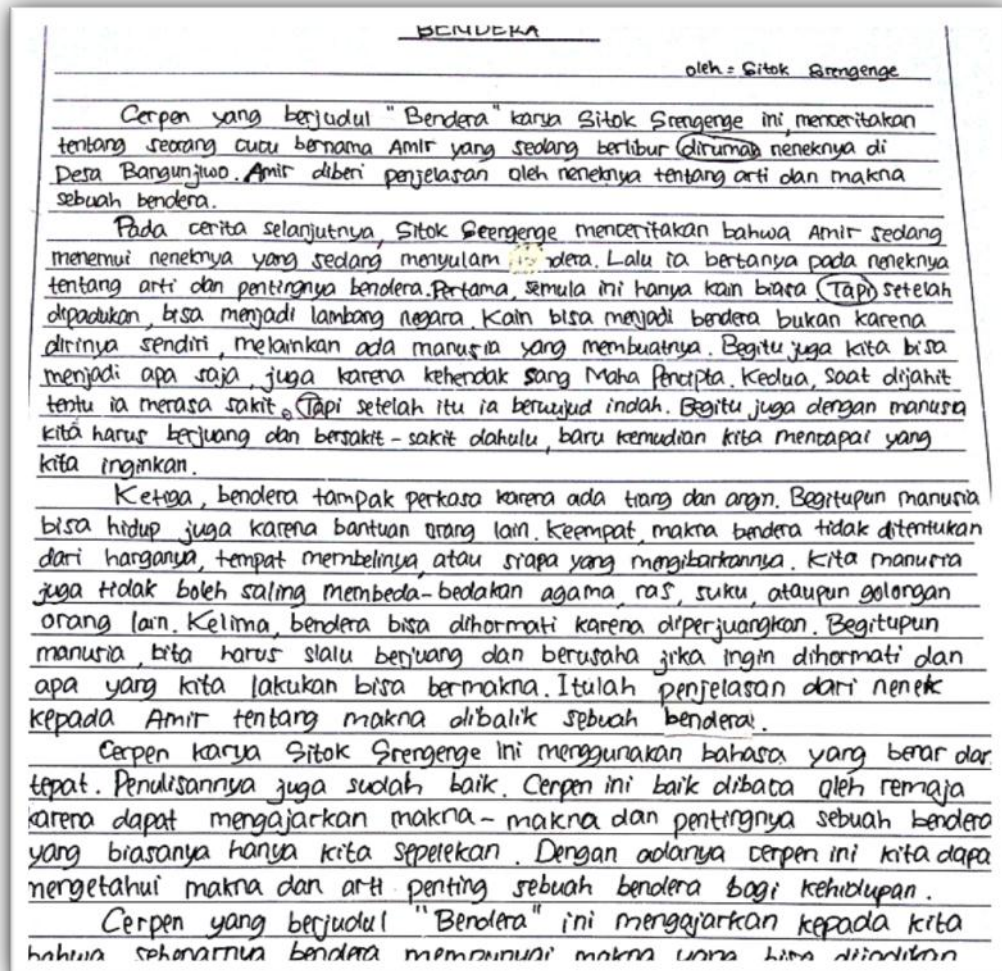 BENDERA
oleh = Sitok Srengenge
Cerpen yang berjudul "Bendera" karya Sitok Srengenge ini, menceritakan
tentang seorang cucu bernama Amir yang sedang berlibur dirumah neneknya di
Desa Bangunjiwo. Amir diberi penjelasan oleh neneknya tentang arti dan makna
sebuah bendera.
Pada cerita selanjutnya, Sitok Seengenge menceritakan bahwa Amir sedang
menemui neneknya yang sedang menyulam dera. Lalu ia bertanya pada neneknya
tentang arti dan pentingnya bendera. Pertama, semula ini hanya kain biasa. Tapi setelah
dipadukan, bisa menjadi lambang negara. Kain bisa menjadi bendera bukan karena
dirinya sendiri, melainkan ada manusia yang membuatnya. Begitu juga kita bisa
menjadi apa saja, juga karena kehendak Sang Maha Pencipta. Kedua, saat dijahit
tentu ia merasa sakit. Tapi setelah itu ia berwujud indah. Begitu juga dengan manusia
kita harus berjuang dan bersakit-sakit dahulu, baru kemudian kita mencapai yang
kita inginkan.
Ketiga, bendera tampak perkasa karena ada tiang dan angin. Begitupun manusia
bisa hidup juga karena bantuan orang lain. Keempat, makna bendera tidak ditentukan
dari harganya, tempat membelinya, atau siapa yang mengibarkannya. Kita manusia
juga tidak boleh saling membeda-bedakan agama, ras, suku, ataupun golongan
orang lain. Kelima, bendera bisa dihormati karena diperjuangkan. Begitupun
manusia, kita harus slalu berjuang dan berusaha jika ingin dihormati dan
apa yang kita lakukan bisa bermakna. Itulah penjelasan dari nenek
kepada Amir tentang makna dibalik sebuah bendera.
Cerpen karya Sitok Srengenge ini menggunakan bahasa yang benar dan
tepat. Penulisannya juga sudah baik. Cerpen ini baik dibaca oleh remaja
karena dapat mengajarkan makna-makna dan pentingnya sebuah bendera
yang biasanya hanya kita sepelekan. Dengan adanya cerpen ini kita dapa
mengetahui makna dan arti penting sebuah bendera bagi kehidupan.
Cerpen yang berjudul "Bendera" ini mengajarkan kepada kita
bahwa sebenarnya bendera mempunyai makna yang bisa dijadikan